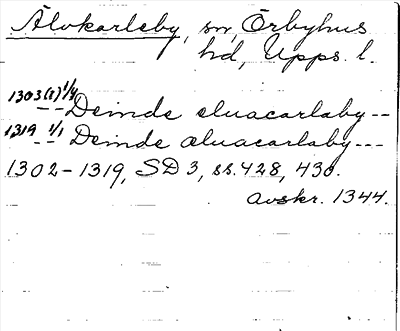 Älvkarleby, sn, Örbyhus
hd, Upps. l.
1303(?) 1/4
-- Deinde eluacarlaby --
1319 1/1
-- Deinde æluacarlaby ---
1302-1319, SD 3, ss. 428, 430.
avskr. 1344.